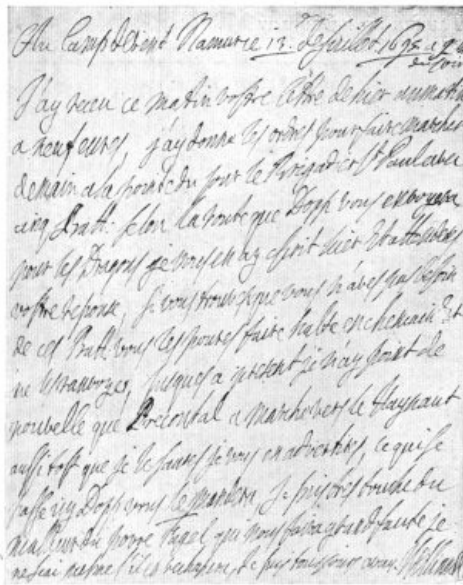 Au Camp devent Namur ce 13. de Juillet 1695 a 9
du soir
J'ay receu ce matin vostre lettre de hier au matin
a neuf eures, j'ay donne les ordres pour faire marcher
demain a la pointe du jour le Brigadier St Paul avec
cinq Batt: selon la route que Dopp vous envoyera
pour les Dragons je vous en ay escrit hier et attenderes
vostre response, si vous trouves que vous n'aves pas besoin
de ces Batt: vous les poures faire halte en chemain et
me les ranvoyer, jusques a present je n'ay point de
nouvelle que Precontal a marche vers le Haynaut
aussi tost que je le saures je vous en advertires, ce qui se
passe icy Dopp vous le mandera, je suis tres du
malleur du povre Fagel qui nous faira grand faute je
ne sai mesme s'il en rechapera, Je suis tousjours a vous. William R